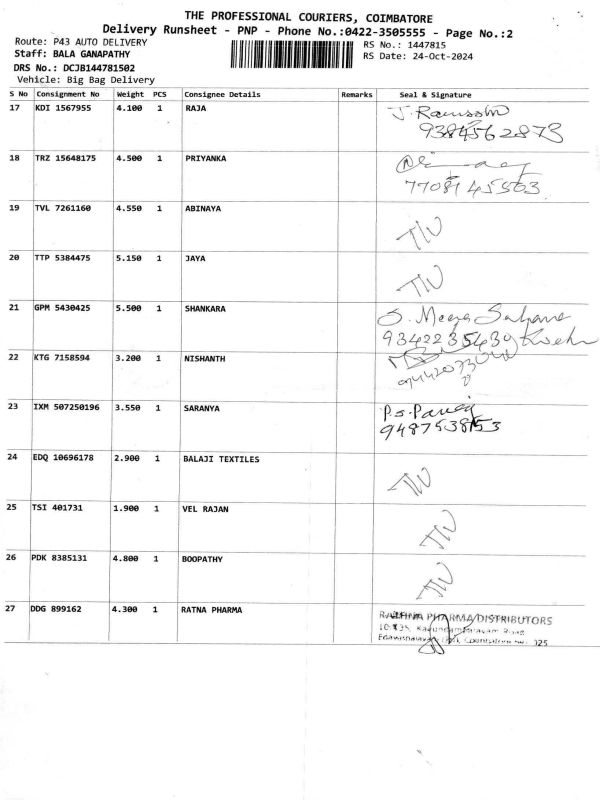 THE PROFESSIONAL COURIERS, COIMBATORE
Delivery Runsheet - PNP - Phone No.:0422-3505555 - Page No.:2
Route: P43 AUTO DELIVERY
RS No.: 1447815
Staff: BALA GANAPATHY
RS Date: 24-Oct-2024
DRS No.: DCJB144781502
Vehicle: Big Bag Delivery
S No Consignment No Weight PCS Consignee Details Remarks Seal & Signature
17 KDI 1567955 4.100 1 RAJA
9384562873
18 TRZ 15648175 4.500 1 PRIYANKA
7708145503
19 TVL 7261160 4.550 1 ABINAYA
20 TTP 5384475 5.150 1 JAYA
21 GPM 5430425 5.500 1 SHANKARA S. Meega
9342235430
22 KTG 7158594 3.200 1 NISHANTH
23 IXM 507250196 3.550 1 SARANYA P.S.
9487538153
24 EDQ 10696178 2.900 1 BALAJI TEXTILES
25 TSI 401731 1.900 1 VEL RAJAN
26 PDK 8385131 4.800 1 BOOPATHY
27 DDG 899162 4.300 1 RATNA PHARMA PHARMA DISTRIBUTORS